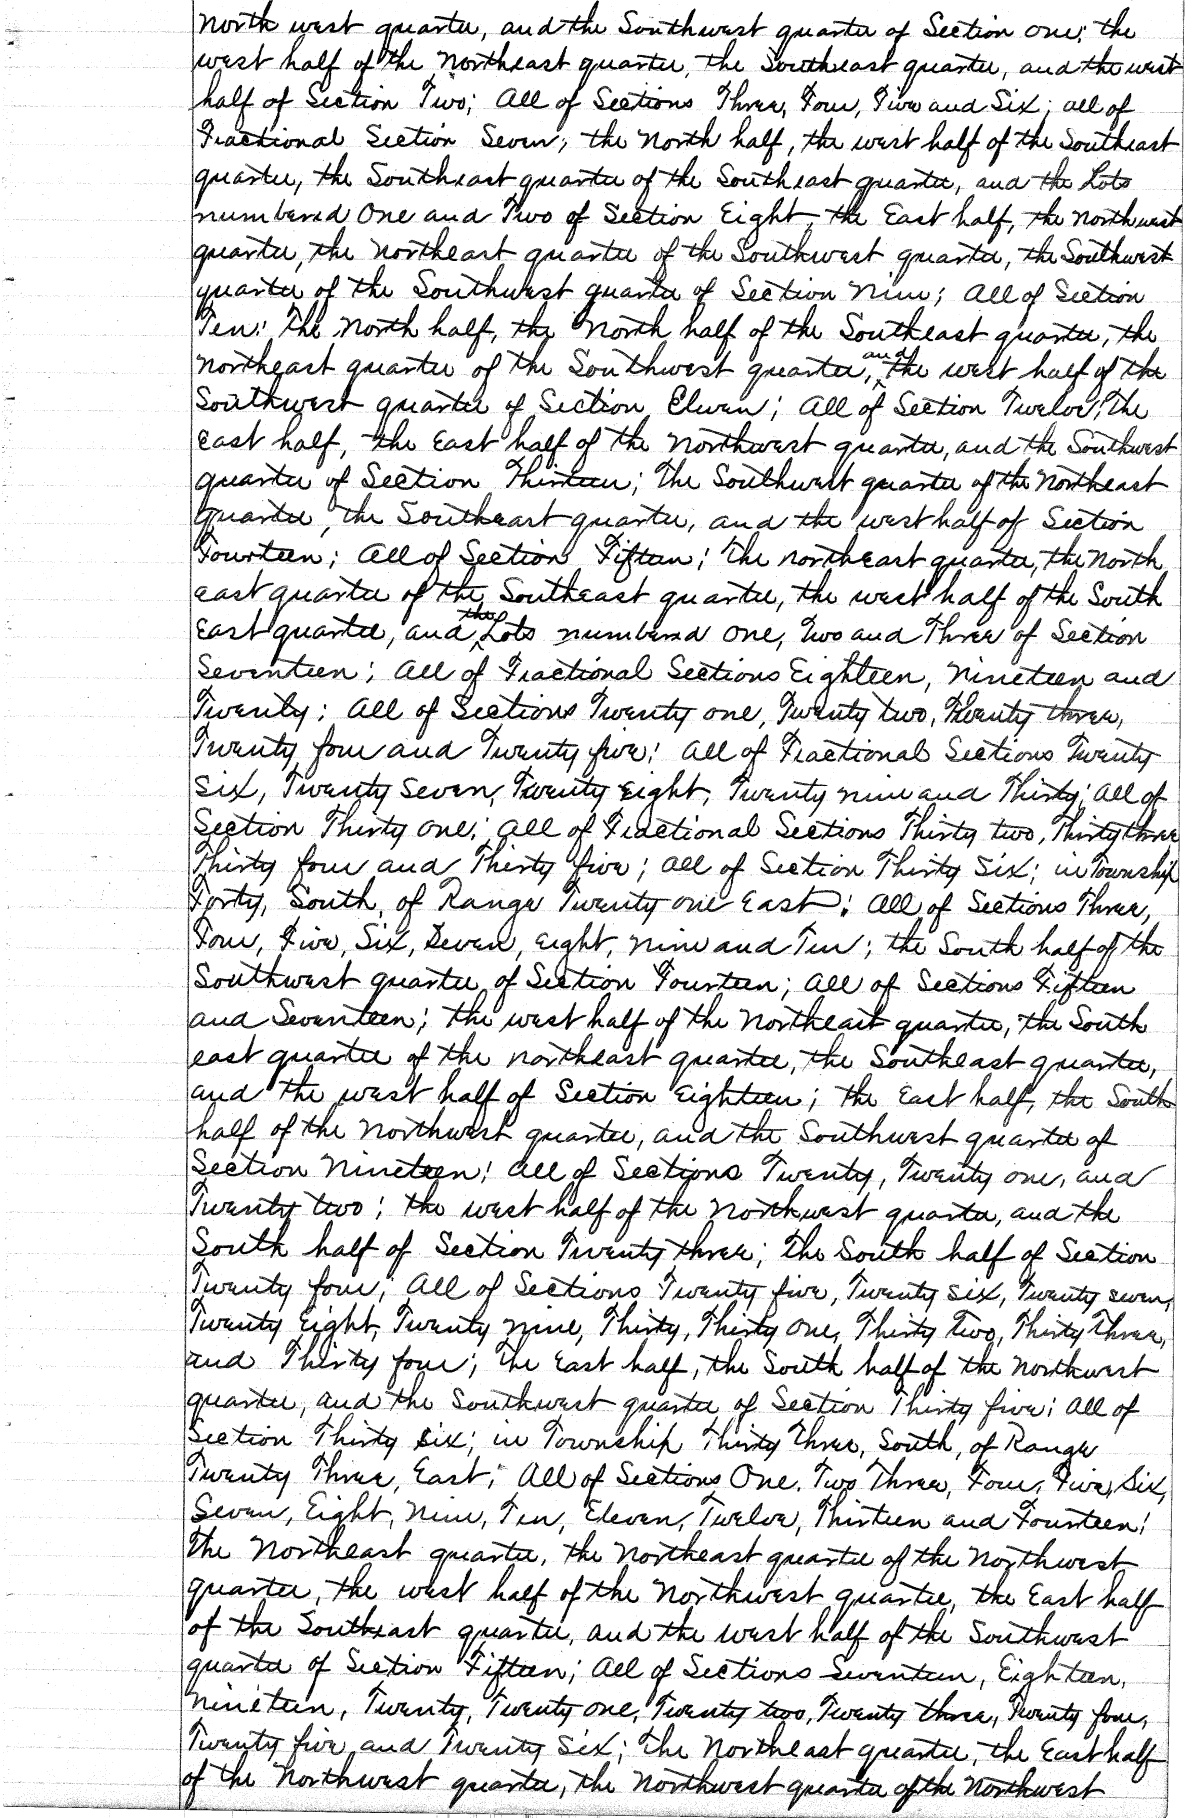 North west quarter, and the Southwest quarter of Section one; the
west half of the Northeast quarter, the Southeast quarter, and the west
half of Section Two; All of Sections Three, Four, Five and Six; all of
Fractional Section Seven; the North half, the west half of the Southeast
quarter, the Southeast quarter of the Southeast quarter, and the Lots
numbered One and Two of Section Eight; the East half, the Northwest
quarter, the Northeast quarter of the Southwest quarter, the Southwest
quarter of the Southwest quarter of Section Nine; All of Section
Ten; The North half, the North half of the Southeast quarter, the
Northeast quarter of the Southwest quarter, and the west half of the
Southwest quarter of Section Eleven; All of Section Twelve; The
East half, the East half of the Northwest quarter, and the Southwest
quarter of Section Thirteen; The Southwest quarter of the Northeast
quarter, the Southeast quarter, and the west half of Section
Fourteen; All of Section Fifteen; The northeast quarter, the North
east quarter of the Southeast quarter, the west half of the South
East quarter, and the Lots numbered One, Two and Three of Section
Seventeen; All of Fractional Sections Eighteen, Nineteen and
Twenty; All of Sections Twenty one, Twenty two, Twenty three,
Twenty four and Twenty five; All of Fractional Sections Twenty
Six, Twenty Seven, Twenty Eight, Twenty nine and Thirty; All of
Section Thirty one; All of Fractional Sections Thirty two, Thirty three
Thirty four and Thirty five; All of Section Thirty Six; in Township
Forty, South, of Range Twenty one East; All of Sections Three,
Four, Five, Six, Seven, Eight, Nine and Ten; the South half of the
Southwest quarter of Section Fourteen; All of Sections Fifteen
and Seventeen; the west half of the Northeast quarter, the South
east quarter of the northeast quarter, the Southeast quarter,
and the west half of Section Eighteen; the East half, the South
half of the Northwest quarter, and the Southwest quarter of
Section Nineteen; All of Sections Twenty, Twenty one, and
Twenty two; the west half of the Northwest quarter, and the
South half of Section Twenty three; The South half of Section
Twenty four; All of Sections Twenty five, Twenty six, Twenty seven,
Twenty Eight, Twenty nine, Thirty, Thirty One, Thirty Two, Thirty Three,
and Thirty four; The East half, the South half of the Northwest
quarter, and the Southwest quarter of Section Thirty five; All of
Section Thirty Six; in Township Thirty Three, South, of Range
Twenty Three, East; All of Sections One, Two Three, Four, Five, Six,
Seven, Eight, Nine, Ten, Eleven, Twelve, Thirteen and Fourteen;
The Northeast quarter, the Northeast quarter of the Northwest
quarter, the west half of the Northwest quarter, the East half
of the Southeast quarter, and the west half of the Southwest
quarter of Section Fifteen; All of Sections Seventeen, Eighteen,
Nineteen, Twenty, Twenty one, Twenty two, Twenty three, Twenty four,
Twenty five and Twenty Six; The Northeast quarter, the East half
of the Northwest quarter, the Northwest quarter of the Northwest